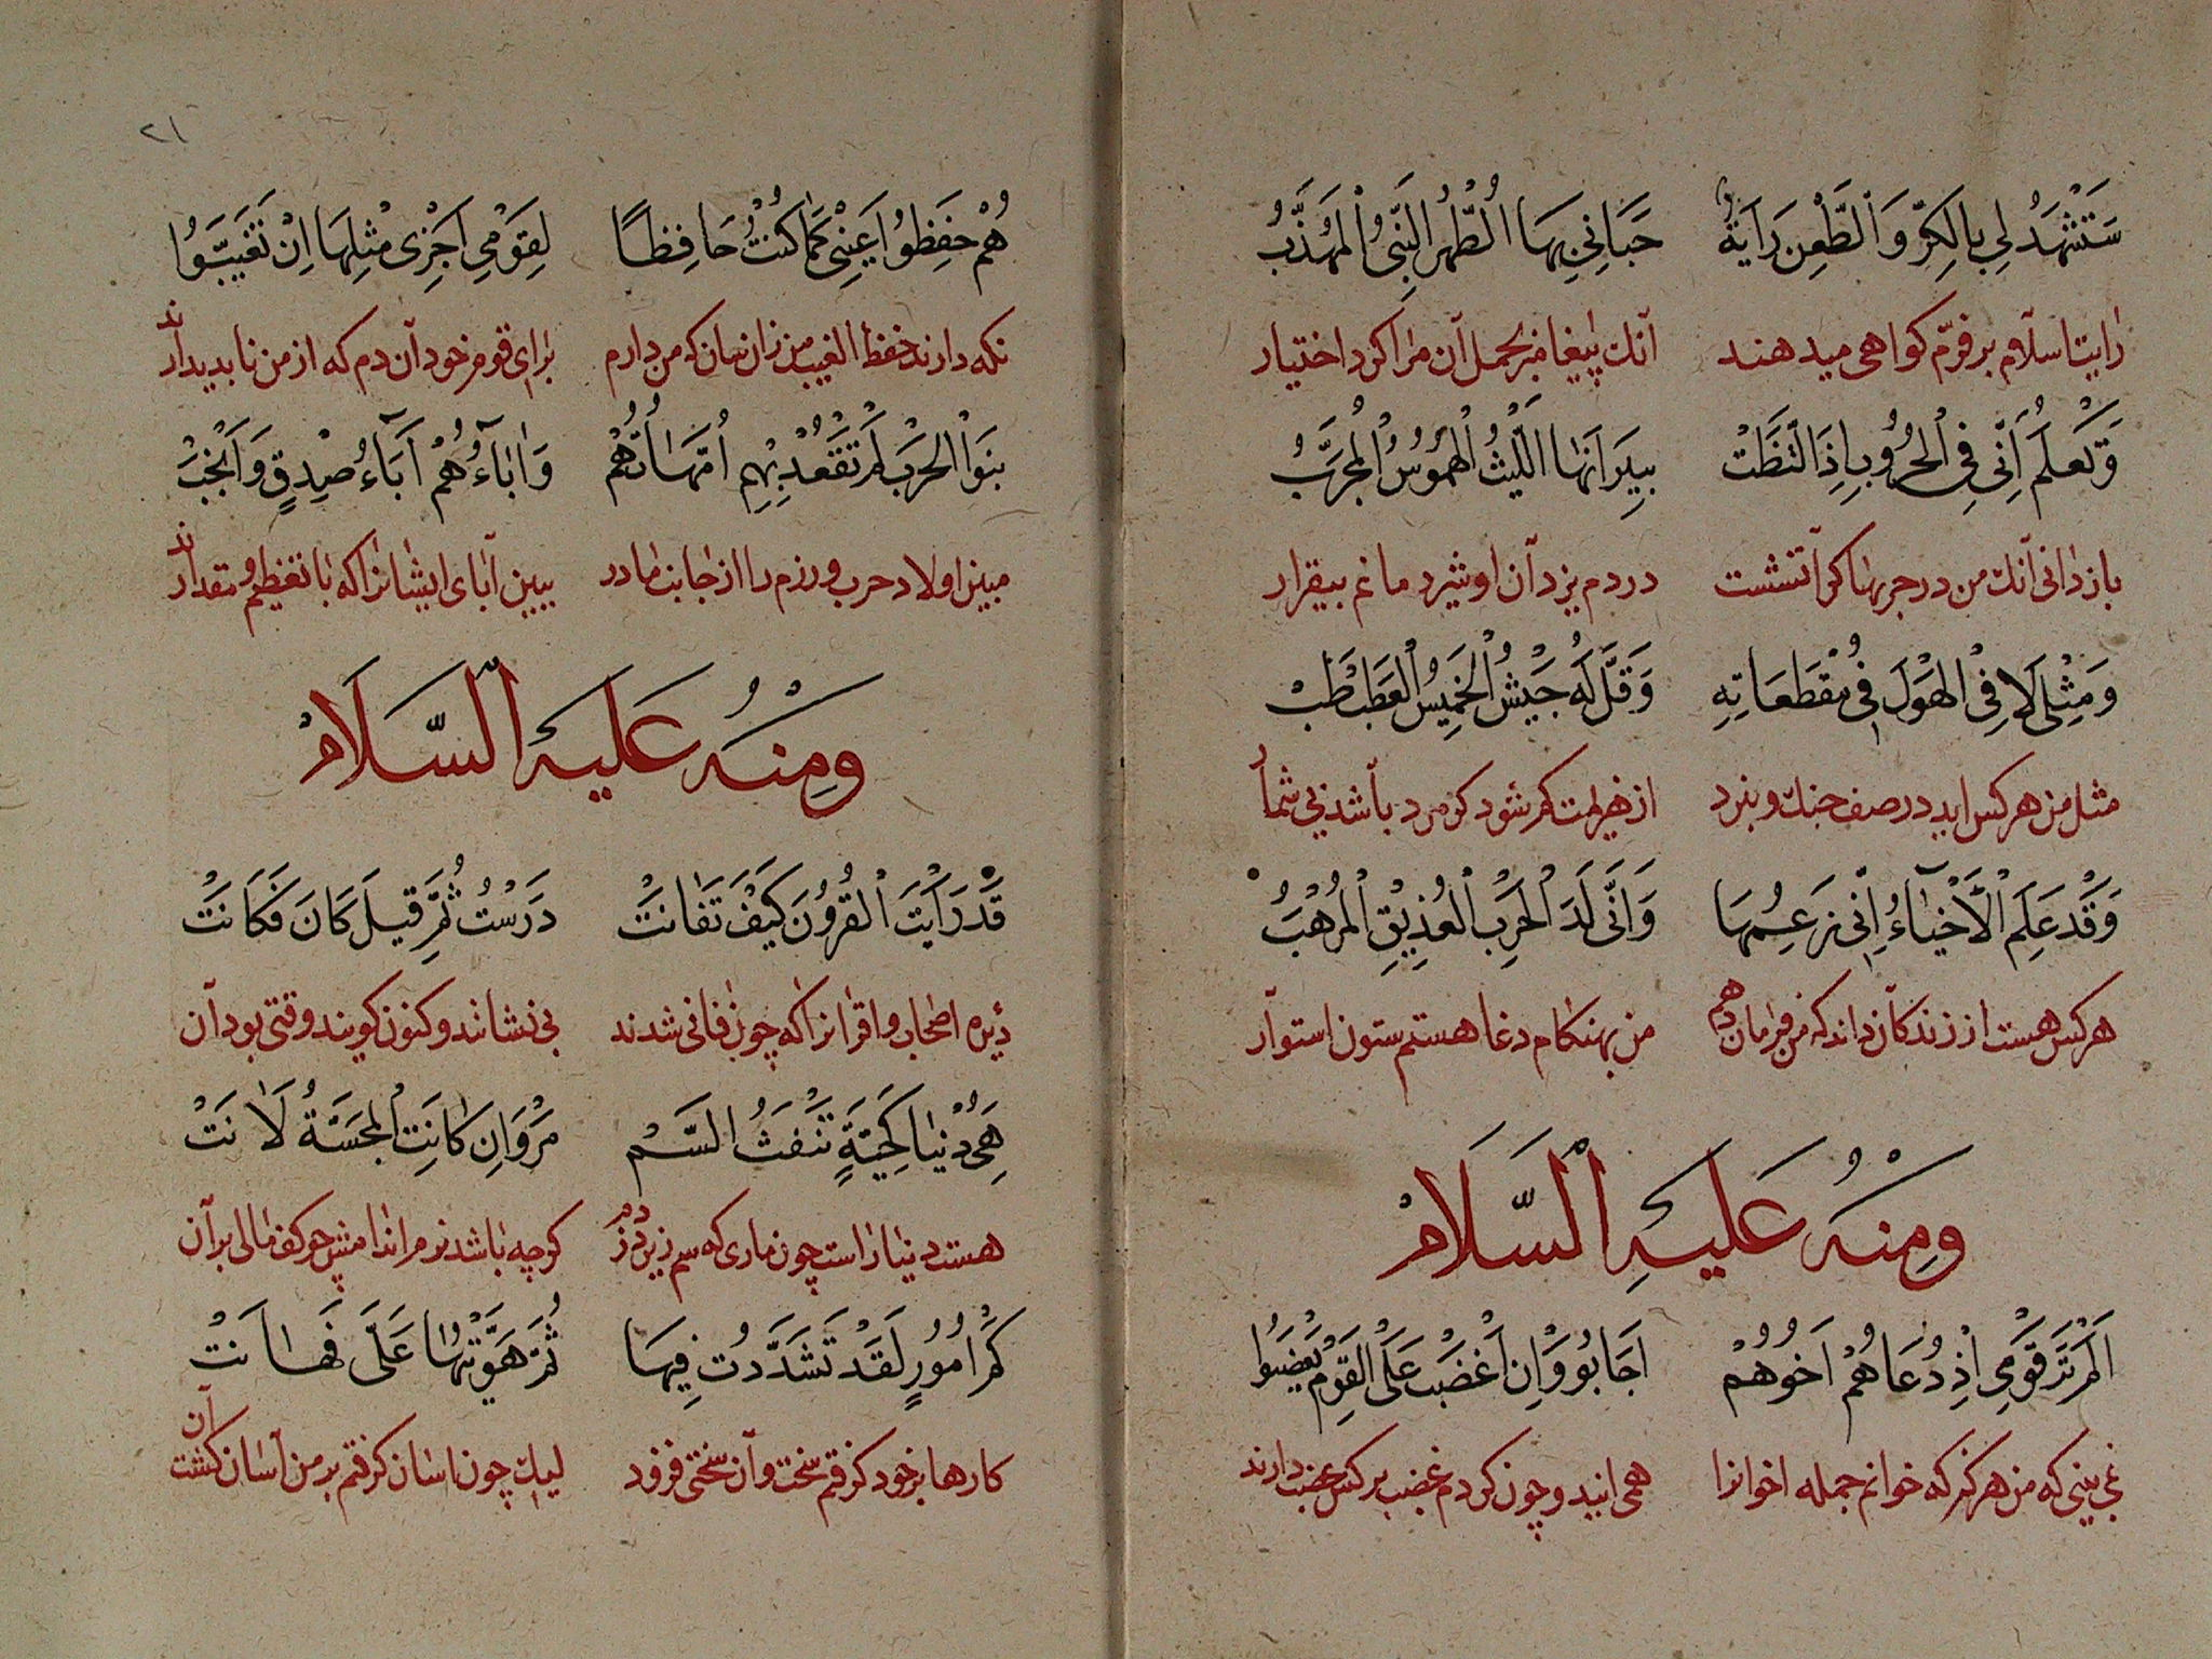 سَتَشْهَدُ لِي بِالْكَرِّ وَالطَّعْنِ رَايَةٌ حَبَانِي بِهَا الطُّهْرُ النَّبِيُّ الْمُهَذَّبُ
رایت اسلام بر فرّم کواهی میدهند آنک پیغامبر بحمل آن مرا کرد اختیار
وَتَعْلَمُ اَنِّي فِي الْحُرُوبِ اِذَا الْتَظَتْ بِنِيرَانِهَا اللَّيْثُ الْهَمُوسُ الْمُجَرَّبُ
باز دانی آنک من در حربها کر آتشست در دم یزد آن او شیرد مانم بیقرار
وَمِثْلِي لَاقِي الْهَوْلَ فِي مُقْطَعَاتِهِ وَقَلَّ لَهُ جَيْشُ الْخَمِيسُ الْعَطَبْطَبْ
مثل من هر کس اید در صف جنک و نبرد از هزیمت کم شود کو مرد باشد بی شمار
وَقَدْ عَلِمَ الْاَحْيَآءُ اِنِّي زَعِيمُهَا وَاَنِّي لَدَ الْحَرْبِ الْعُذَيْقِ الْمُرَهَّبُ
هر کس هست از زندکان داند که من فرمان دهم من بهنکام دغا هستم ستون استوار
وَمِنْهُ عَلَيْهِ السَّلَامْ
اَلَمْ تَرَ قَوْمِي اِذْ دُعَاهُمْ اَخُوهُمْ اَجَابُوا وَاِنْ اَغْضَبْ عَلَى الْقَوْمِ يَغْضَبُوا
نمی بینی که من هرکز که خوانم جمله اخوانرا همی ایند و چون کردم غضب بر کس غضب دارند
۲۱
هُمْ حَفِظُوا غَيْبِي كَمَا كُنْتُ حَافِظًا لِقَوْمِي اَجْزِي مِثْلِهَا اِنْ تَغَيَّبُوا
نکه دارند حفظ الغیب من زان سان که من دارم برای قوم خود آن دم که از من نابدیدارند
بَنُوا الْحَرْبَ لَمْ تَقْعُدْ بِهِمْ اُمَّهَاتُهُمْ وَاٰبَآءُهُمْ آبَآءُ صِدْقٍ وَاَنْجَبَ
مبین اولاد حرب و رزم را از جانب مادر ببین آبای ایشانرا که با تعظیم و مقدارند
وَمِنْهُ عَلَيْهِ السَّلَامْ
قَدْ رَاَيْتَ الْقُرُونَ كَيْفَ تَفَانَتْ دَرَسْتْ ثُمَّ قِيلَ كَانَ فَكَانَتْ
دیدۀ اصحاب و اقرانرا که چون فانی شدند بی نشانند و کنون کویند وقتی بود آن
هِيَ دُنْيَا كَحَيَّةٍ تَنْفَثُ السَّمْ مَرْوَاِنْ كَانَتِ الْمَجَسَّةُ لَانَتْ
هست دنیا راست چون ماری که سم ریزد ز دم کرچه باشد نرم اندامش چو کف مالی بر آن
كَمْ اُمُورٍ لَقَدْ تَشَدَّدْتُ فِيهَا ثُمَّ هَوَّنْتُهَا عَلَيَّ فَهَانَتْ
کارها بر خود کرفتم سخت و آن سختی فزود لیک چون اسان کرفتم بر من آسان کشت آن